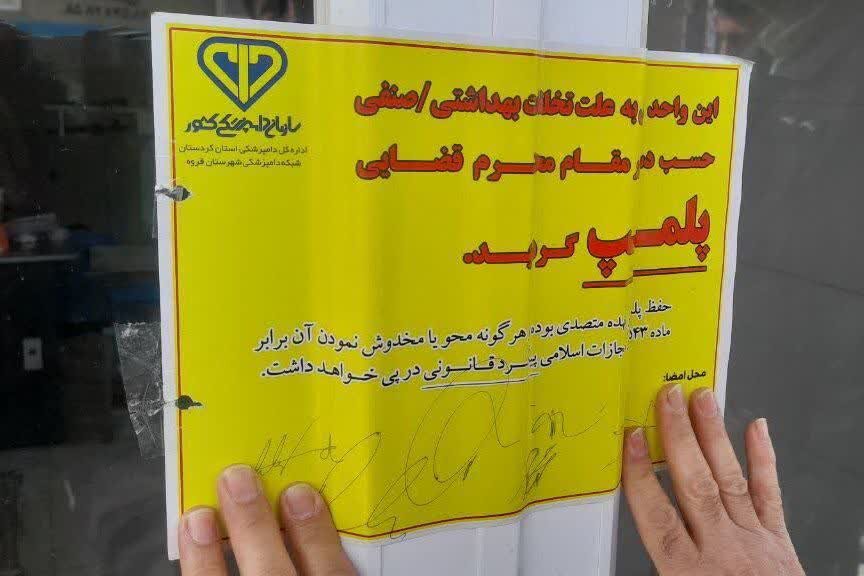 سازمان دامپزشکی کشور
اداره کل دامپزشکی استان کردستان
شبکه دامپزشکی شهرستان قروه
این واحد به علت تخلفات بهداشتی/صنفی
حسب دستور مقام محترم قضایی
پلمپ گردید.
حفظ پلمپ بعهده متصدی بوده هرگونه محو یا مخدوش نمودن آن برابر
ماده ۵۴۳ مجازات اسلامی پیگرد قانونی در پی خواهد داشت.
محل امضا: